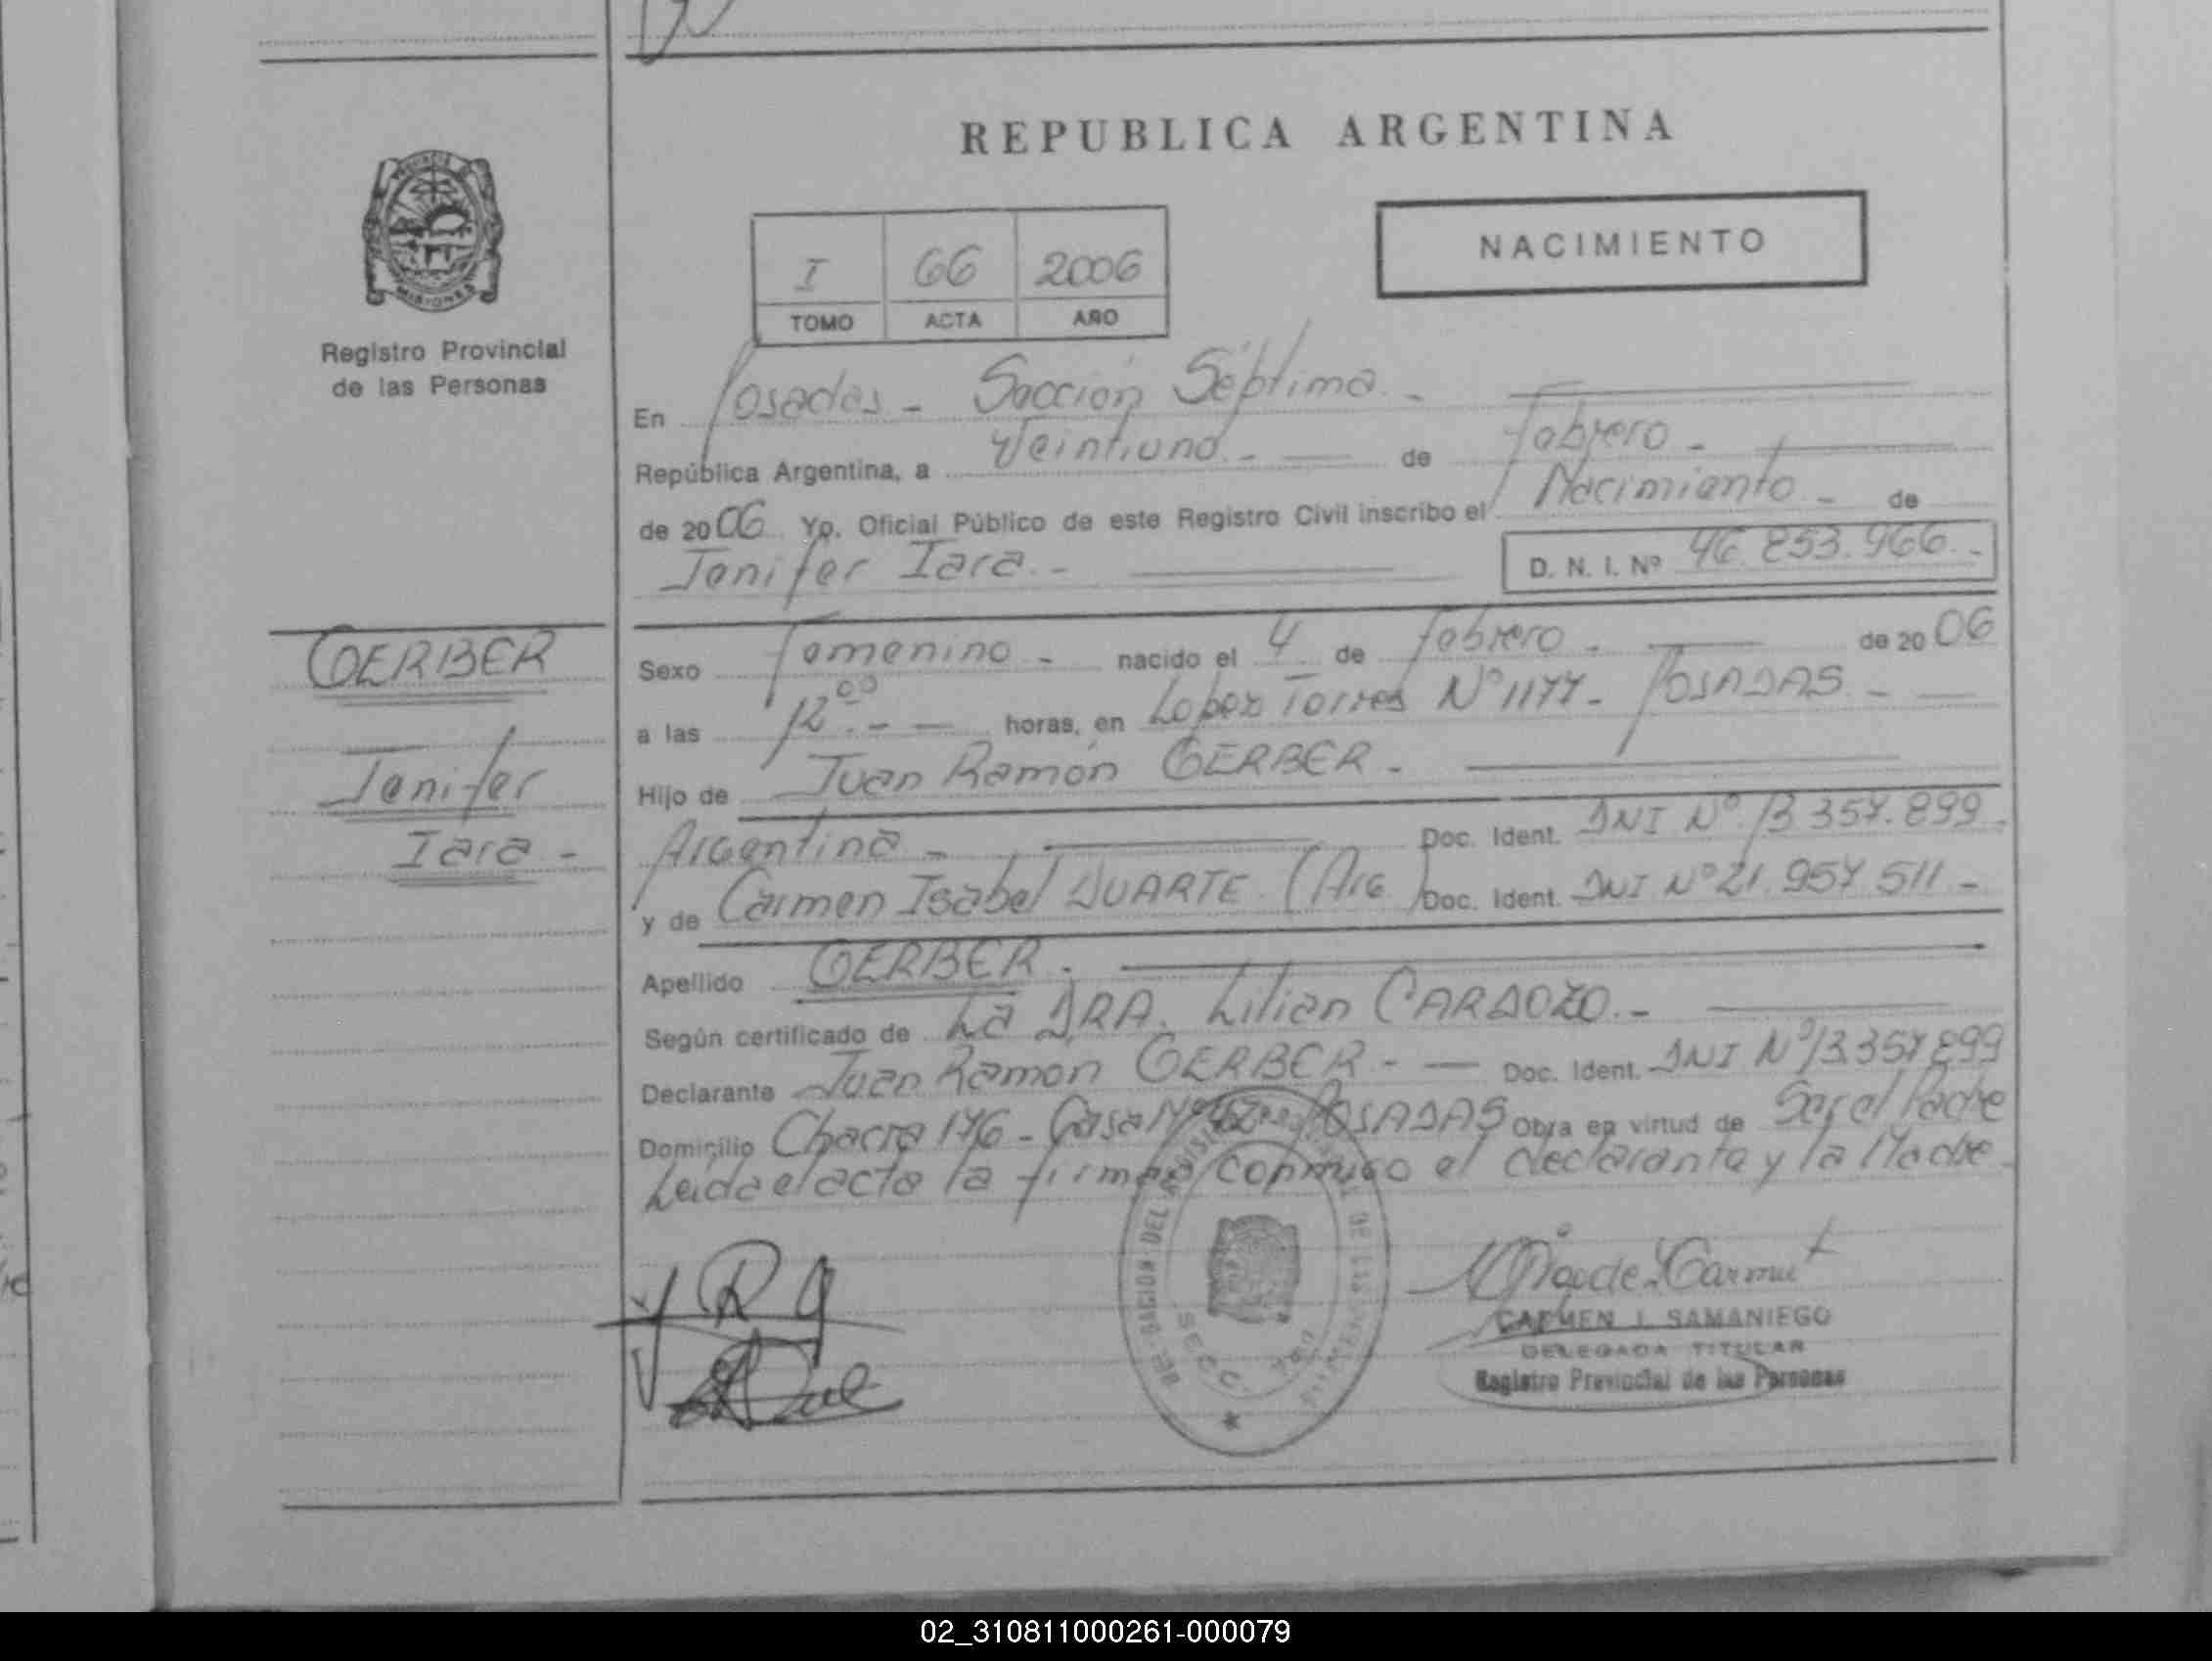 REPUBLICA ARGENTINA
NACIMIENTO
I 66 2006
TOMO ACTA AÑO
PROVINCIA
MISIONES
Registro Provincial
de las Personas
En Posadas - Sección Séptima. -
República Argentina, a Veintiuno. - de febrero -
de 2006 Yo, Oficial Público de este Registro Civil inscribo el Nacimiento - de
Jenifer Iara. -
D. N. I. Nº 46.853.966. -
GERBER
Jenifer
Iara -
Sexo femenino - nacido el 4 de febrero - de 2006
a las 12 00. - - horas, en Lopez Torres Nº 1177 - POSADAS -
Hijo de Juan Ramón GERBER -
Argentina - Doc. Ident. DNI Nº 13 357.899 -
y de Carmen Isabel DUARTE (Arg.) Doc. Ident. DNI Nº 21.957 511 -
Apellido GERBER.
Según certificado de La DRA. Lilian CARDOZO. -
Declarante Juan Ramon GERBER - - Doc. Ident. DNI Nº 13.357 899
Domicilio Chacra 176 - Casa Nº POSADAS Obra en virtud de Ser el Padre
Leida el acta la firma conmigo el declarante y la Madre.
CARMEN I. SAMANIEGO
DELEGADA TITULAR
Registro Provincial de las Personas
02_310811000261-000079